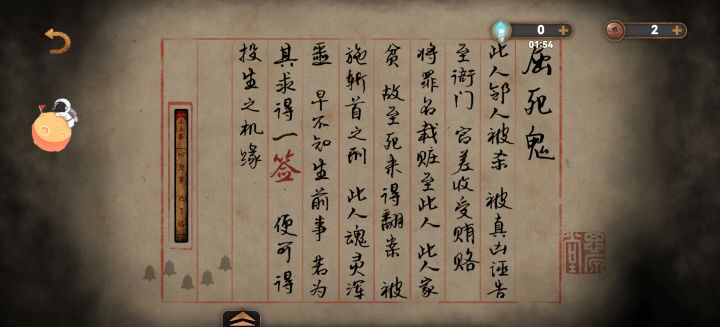 0
2
01:54
屈死鬼
此人邻人被杀 被真凶诬告
至衙门 官差收受贿赂
将罪名栽赃至此人 此人家
贫 故至死未得翻案 被
施斩首之刑 此人魂灵浑
噩 早不知生前事 若为
其求得一签 便可得
投生之机缘